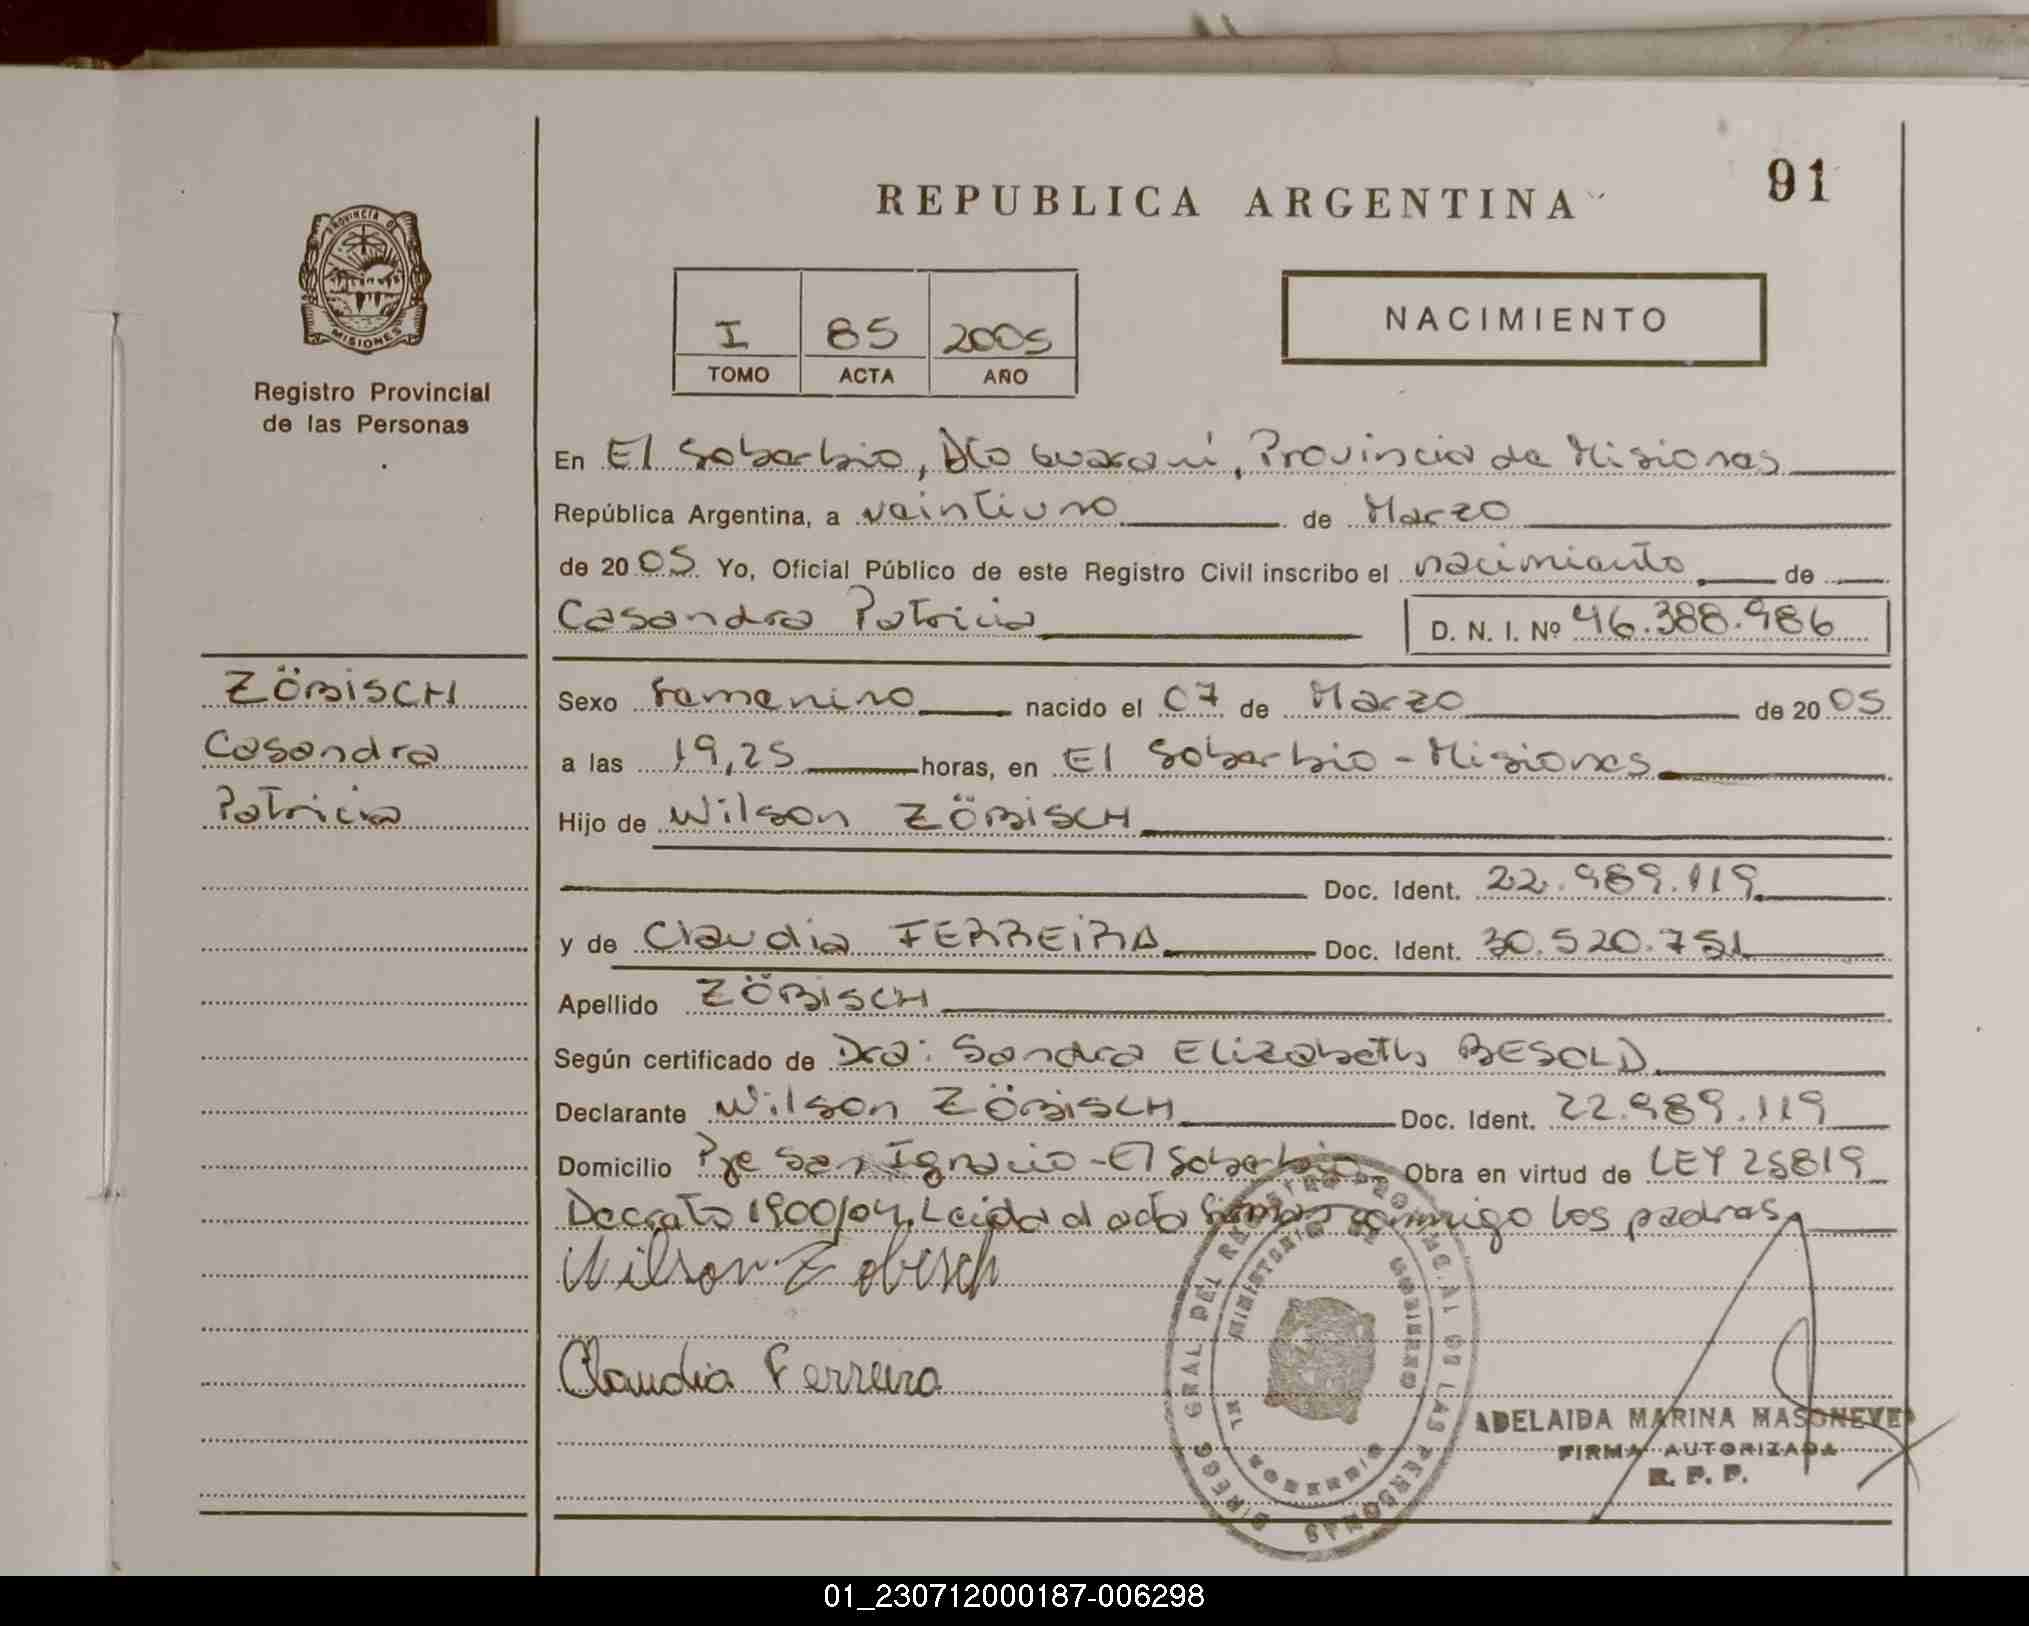 REPUBLICA ARGENTINA
91
PROVINCIA DE
MISIONES
Registro Provincial
de las Personas
I 85 2005
TOMO ACTA AÑO
NACIMIENTO
En El Soberbio, Dto Guaraní, Provincia de Misiones
República Argentina, a veintiuno de Marzo
de 2005 Yo, Oficial Público de este Registro Civil inscribo el nacimiento de
Casandra Patricia D. N. I. Nº 46.388.986
ZÖBISCH
Casandra
Patricia
Sexo femenino nacido el 07 de Marzo de 2005
a las 19,25 horas, en El Soberbio - Misiones
Hijo de Wilson ZÖBISCH
Doc. Ident. 22.989.119
y de Claudia FERREIRA Doc. Ident. 30.520.751
Apellido ZÖBISCH
Según certificado de Dra: Sandra Elizabeth BESOLD
Declarante Wilson ZÖBISCH Doc. Ident. 22.989.119
Domicilio Pje San Ignacio - El Soberbio Obra en virtud de LEY 25819
Decreto 1900/04. Leida el acta firman conmigo los padres
Wilson Zobisch
Claudia Ferreira
DIRECC GRAL DEL REGISTRO PROVINCIAL DE LAS PERSONAS
MINISTERIO DE GOBIERNO
MISIONES
ADELAIDA MARINA MASONEVE
FIRMA AUTORIZADA
R. P. P.
01_230712000187-006298